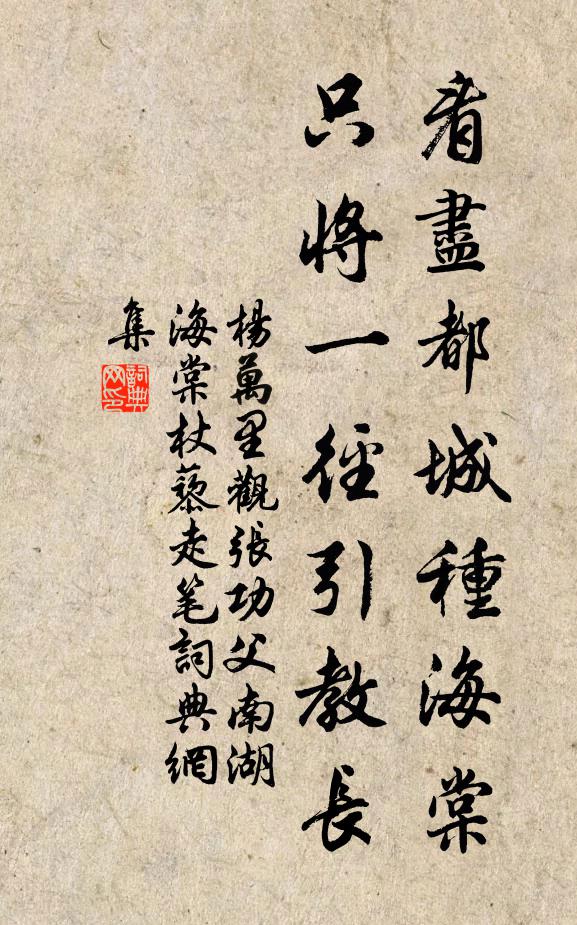 看盡都城種海棠
只將一徑引教長
楊萬里觀張功父南湖
海棠杖藜走笔詞典網
集
詞典
网印